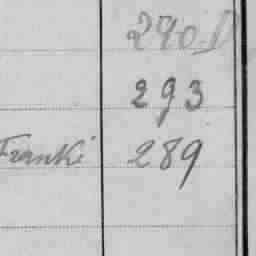 290
293
Franki 289